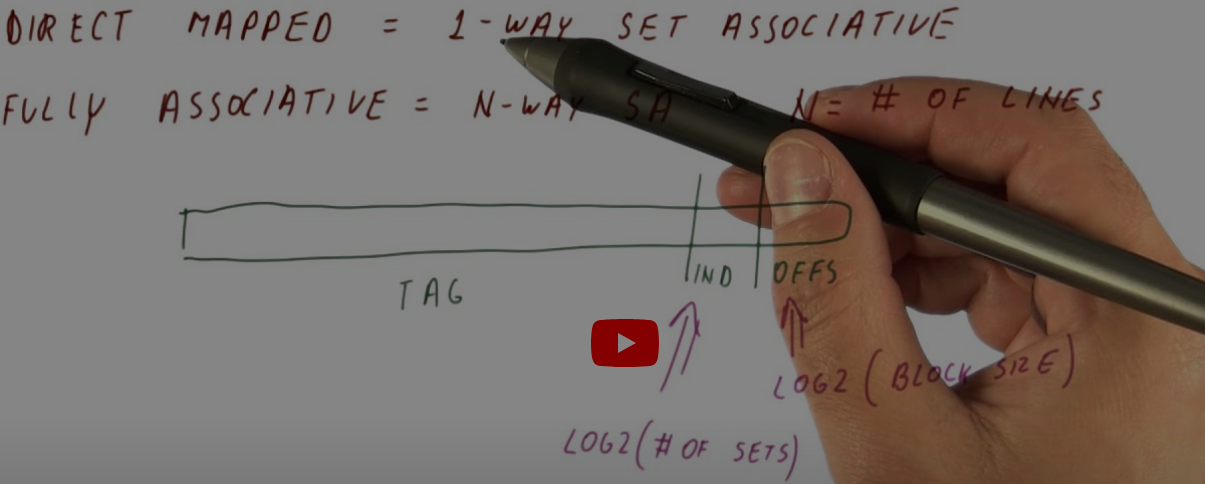 DIRECT MAPPED = 1-WAY SET ASSOCIATIVE
FULLY ASSOCIATIVE = N-WAY SA N= # OF LINES
TAG IND OFFS
LOG2 (BLOCK SIZE)
LOG2 (# OF SETS)